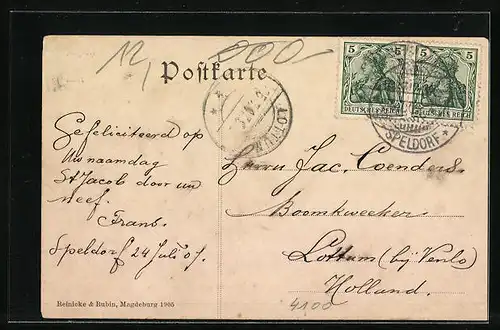 12,
000-
Postkarte
5 5
DEUTSCHES REICH
SPELDORF
LOTTUM
Gefeliciteerd op
Uw naamdag
St Jacob door uw
neef.
Frans.
Speldorf 24 Juli 07.
Herrn Jac. Coenders.
Boomkweeker
Lottum (bij Venlo)
Holland.
Reinicke & Rubin, Magdeburg 1905
4100